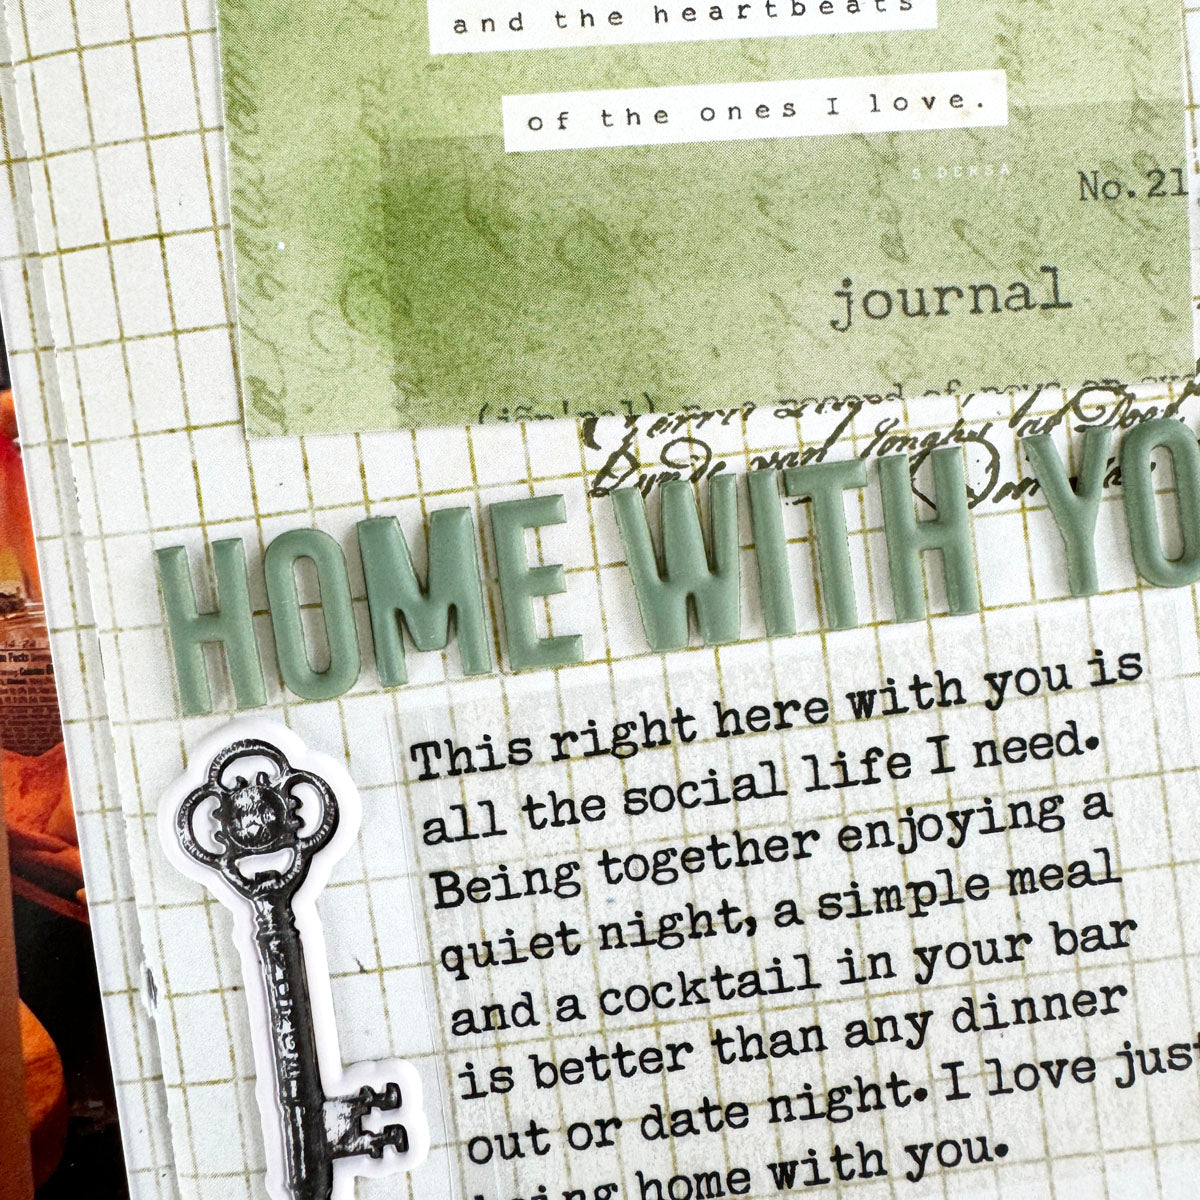 and the heartbeats
of the ones I love.
No.21
journal
HOME WITH YO
This right here with you is
all the social life I need.
Being together enjoying a
quiet night, a simple meal
and a cocktail in your bar
is better than any dinner
out or date night. I love just
being home with you.